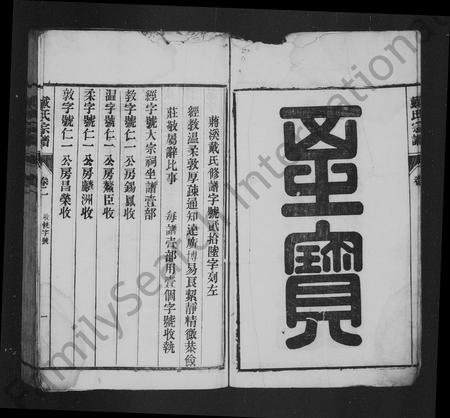 至寶
戴氏宗譜
蔣溪戴氏修譜字號貳拾陸字列左
經教溫柔敦厚疎通知遠廣博易良絜靜精微恭儉
莊敬屬辭比事 每譜壹部用壹個字號收執
經字號大宗祠坐譜壹部
教字號仁一公房錫鳳收
溫字號仁一公房鰲臣收
柔字號仁一公房麟洲收
敦字號仁一公房昌榮收
戴氏宗譜 卷二 收執字號 一
FamilySearch International